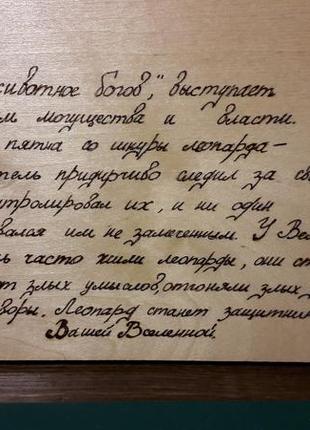 животное богов," выступает
ом могущества и власти.
пятна со шкуры леопарда-
тель придирчиво следил за св
тролировал их, и ни один
вался им не замеченным. У Вел
ь часто жили леопарды, они ст
т злых умыслов, отгоняли злых
воры. Леопард станет защитни
Вашей Вселенной.